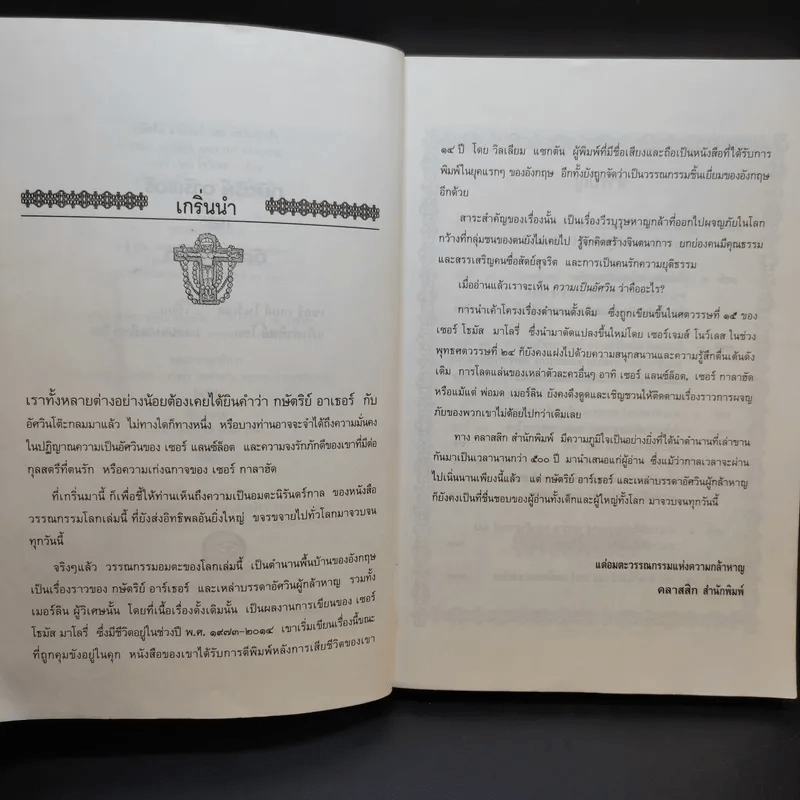 เกริ่นนำ
เราทั้งหลายต่างอย่างน้อยต้องเคยได้ยินคำว่า กษัตริย์ อาเธอร์ กับ
อัศวินโต๊ะกลมมาแล้ว ไม่ทางใดก็ทางหนึ่ง หรือบางท่านอาจจะจำได้ถึงความมั่นคง
ในปฏิญาณความเป็นอัศวินของ เซอร์ แลนซ์ล็อต และความจงรักภักดีของเขาที่มีต่อ
กุลสตรีที่ตนรัก หรือความเก่งฉกาจของ เซอร์ กาลาฮัด
ที่เกริ่นมานี้ ก็เพื่อชี้ให้ท่านเห็นถึงความเป็นอมตะนิรันดร์กาล ของหนังสือ
วรรณกรรมโลกเล่มนี้ ที่ยังส่งอิทธิพลอันยิ่งใหญ่ ขจรขจายไปทั่วโลกมาจวบจน
ทุกวันนี้
จริงๆแล้ว วรรณกรรมอมตะของโลกเล่มนี้ เป็นตำนานพื้นบ้านของอังกฤษ
เป็นเรื่องราวของ กษัตริย์ อาร์เธอร์ และเหล่าบรรดาอัศวินผู้กล้าหาญ รวมทั้ง
เมอร์ลิน ผู้วิเศษนั้น โดยที่เนื้อเรื่องดั้งเดิมนั้น เป็นผลงานการเขียนของ เซอร์
โธมัส มาโลรี่ ซึ่งมีชีวิตอยู่ในช่วงปี พ.ศ. ๑๙๗๓-๒๐๑๔ เขาเริ่มเขียนเรื่องนี้ขณะ
ที่ถูกคุมขังอยู่ในคุก หนังสือของเขาได้รับการตีพิมพ์หลังการเสียชีวิตของเขา
๑๔ ปี โดย วิลเลียม แซกตัน ผู้พิมพ์ที่มีชื่อเสียงและถือเป็นหนังสือที่ได้รับการ
พิมพ์ในยุคแรกๆ ของอังกฤษ อีกทั้งยังถูกจัดว่าเป็นวรรณกรรมชิ้นเยี่ยมของอังกฤษ
อีกด้วย
สาระสำคัญของเรื่องนั้น เป็นเรื่องวีรบุรุษหาญกล้าที่ออกไปผจญภัยในโลก
กว้างที่กลุ่มชนของตนยังไม่เคยไป รู้จักคิดสร้างจินตนาการ ยกย่องคนมีคุณธรรม
และสรรเสริญคนซื่อสัตย์สุจริต และการเป็นคนรักความยุติธรรม
เมื่ออ่านแล้วเราจะเห็น ความเป็นอัศวิน ว่าคืออะไร?
การนำเค้าโครงเรื่องตำนานดั้งเดิม ซึ่งถูกเขียนขึ้นในศตวรรษที่ ๑๕ ของ
เซอร์ โธมัส มาโลรี่ ซึ่งนำมาดัดแปลงขึ้นใหม่โดย เซอร์เจมส์ โนว์เลส ในช่วง
พุทธศตวรรษที่ ๒๔ ก็ยังคงแฝงไปด้วยความสนุกสนานและความรู้สึกตื่นเต้นดัง
เดิม การโลดแล่นของเหล่าตัวละครอื่นๆ อาทิ เซอร์ แลนซ์ล็อต, เซอร์ กาลาฮัด
หรือแม้แต่ พ่อมด เมอร์ลิน ยังคงดึงดูดและเชิญชวนให้ติดตามเรื่องราวการผจญ
ภัยของพวกเขาไม่ด้อยไปกว่าเดิมเลย
ทาง คลาสสิก สำนักพิมพ์ มีความภูมิใจเป็นอย่างยิ่งที่ได้นำตำนานที่เล่าขาน
กันมาเป็นเวลานานกว่า ๕๐๐ ปี มานำเสนอแก่ผู้อ่าน ซึ่งแม้ว่ากาลเวลาจะผ่าน
ไปเนิ่นนานเพียงนี้แล้ว แต่ กษัตริย์ อาร์เธอร์ และเหล่าบรรดาอัศวินผู้กล้าหาญ
ก็ยังคงเป็นที่ชื่นชอบของผู้อ่านทั้งเด็กและผู้ใหญ่ทั้งโลก มาจวบจนทุกวันนี้
แด่อมตะวรรณกรรมแห่งความกล้าหาญ
คลาสสิก สำนักพิมพ์